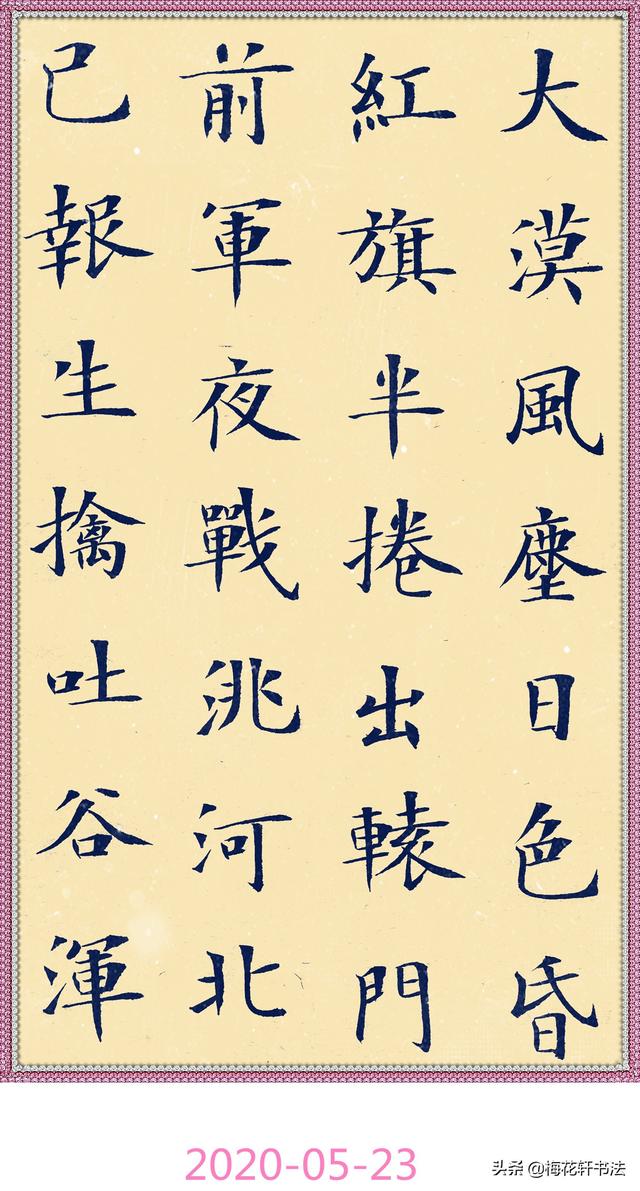 大漠風塵日色昏
紅旗半捲出轅門
前軍夜戰洮河北
已報生擒吐谷渾
2020-05-23
头条 @梅花轩书法